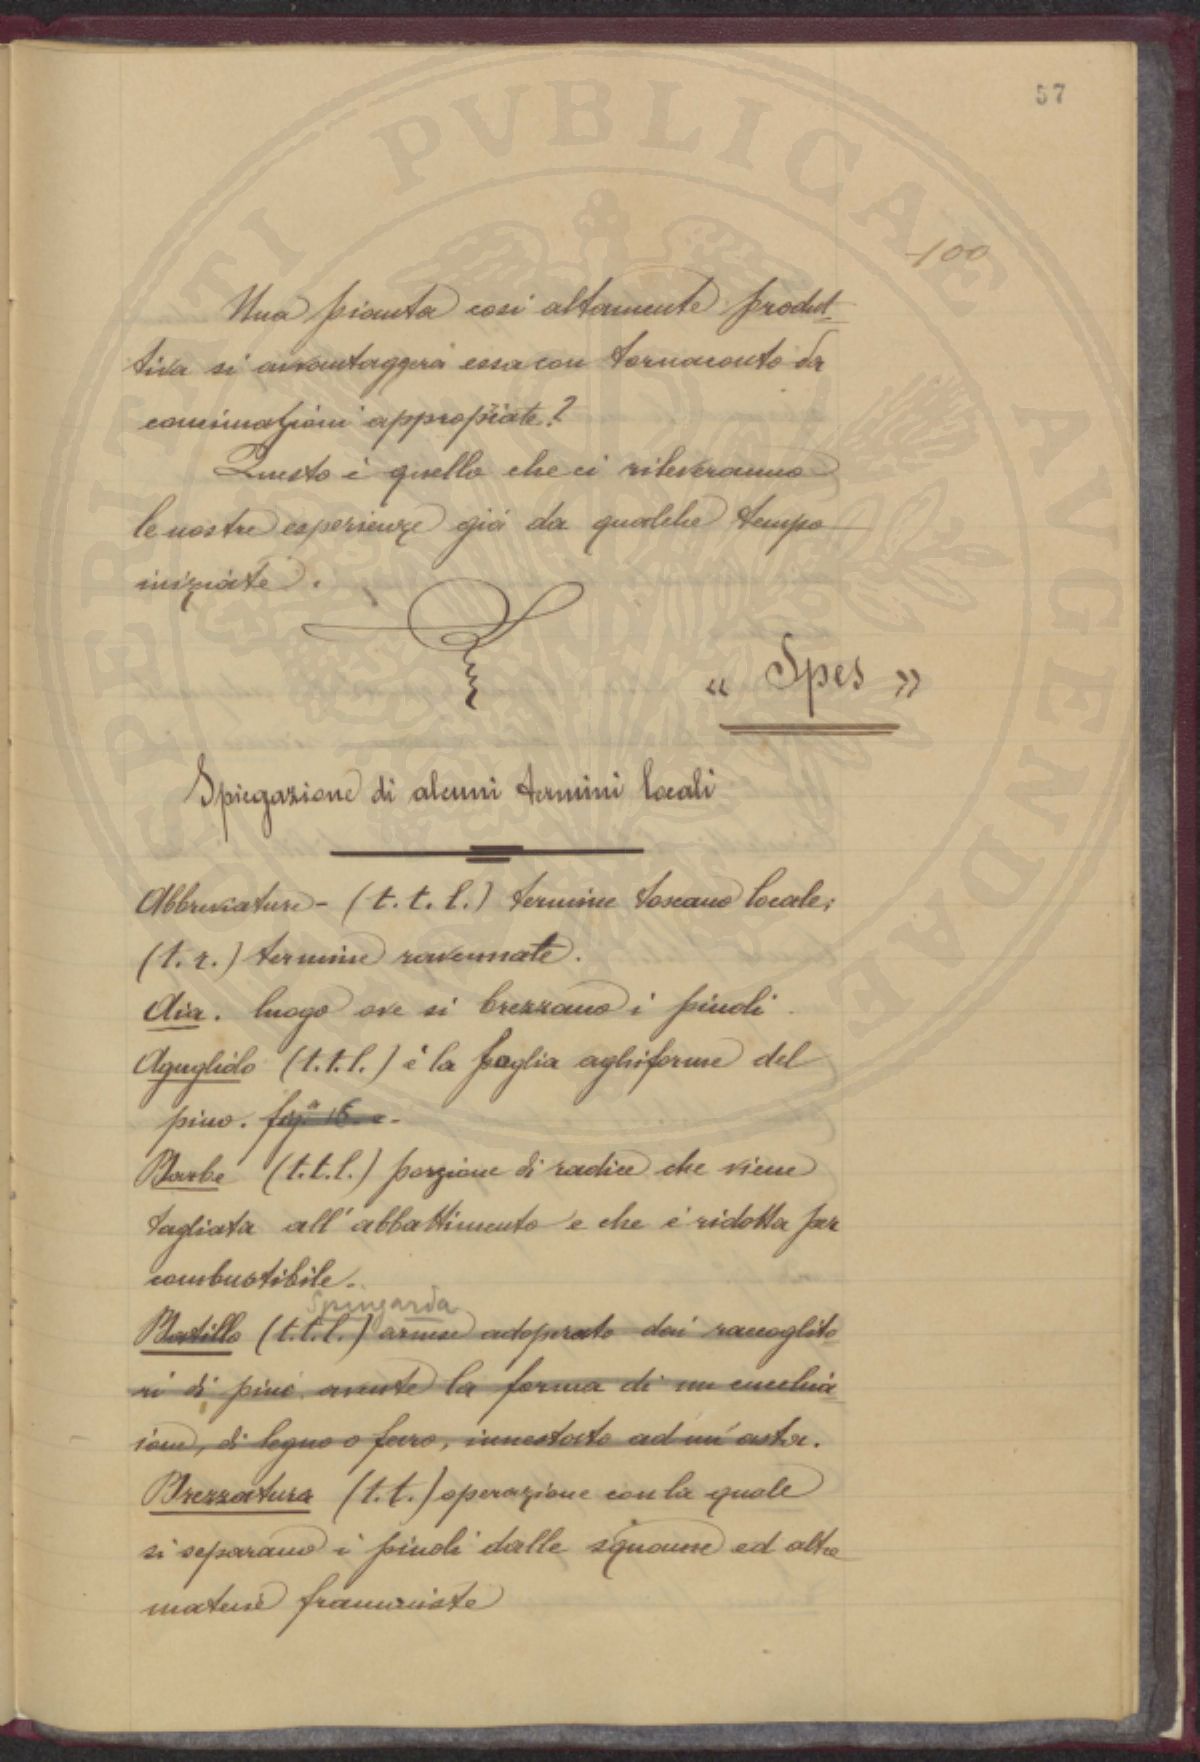 57
100
Una pianta così altamente produt-
tiva si avvantaggerà essa con tornaconto da
concimazioni appropriate?
Questo è quello che ci rileveranno
le nostre esperienze già da qualche tempo
iniziate.
« Spes »
Spiegazione di alcuni termini locali
Abbreviature - (t. t. l.) termine toscano locale;
(t. r.) termine ravennate.
Aia. luogo ove si brezzano i pinoli.
Agugliolo (t.t.l.) è la foglia aghiforme del
pino. figa 16 e-
Barbe (t.t.l.) porzione di radice che viene
tagliata all'abbattimento e che è ridotta per
combustibile.
Spingarda
Bastillo (t.t.l.) arnese adoprato dai raccoglito-
ri di pine, avente la forma di un cucchia-
ione, di legno o ferro, innestato ad un'asta.
Brezzatura (t. t.) operazione con la quale
si separano i pinoli dalle squame ed altre
materie frammiste
PERITI PVBLICAE AVGENDAE